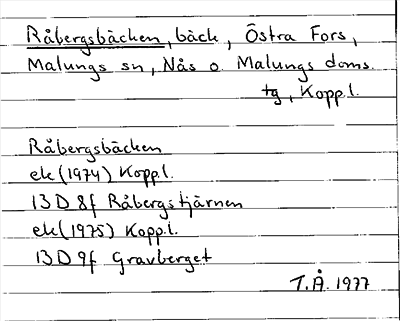 Råbergsbäcken, bäck, Östra Fors,
Malungs sn, Nås o. Malungs doms.
tg, Kopp.l.
Råbergsbäcken
ek (1974) Kopp.l.
13 D 8f Råbergstjärnen
ek (1975) Kopp.l.
13 D 9f Gravberget
T.Å. 1977